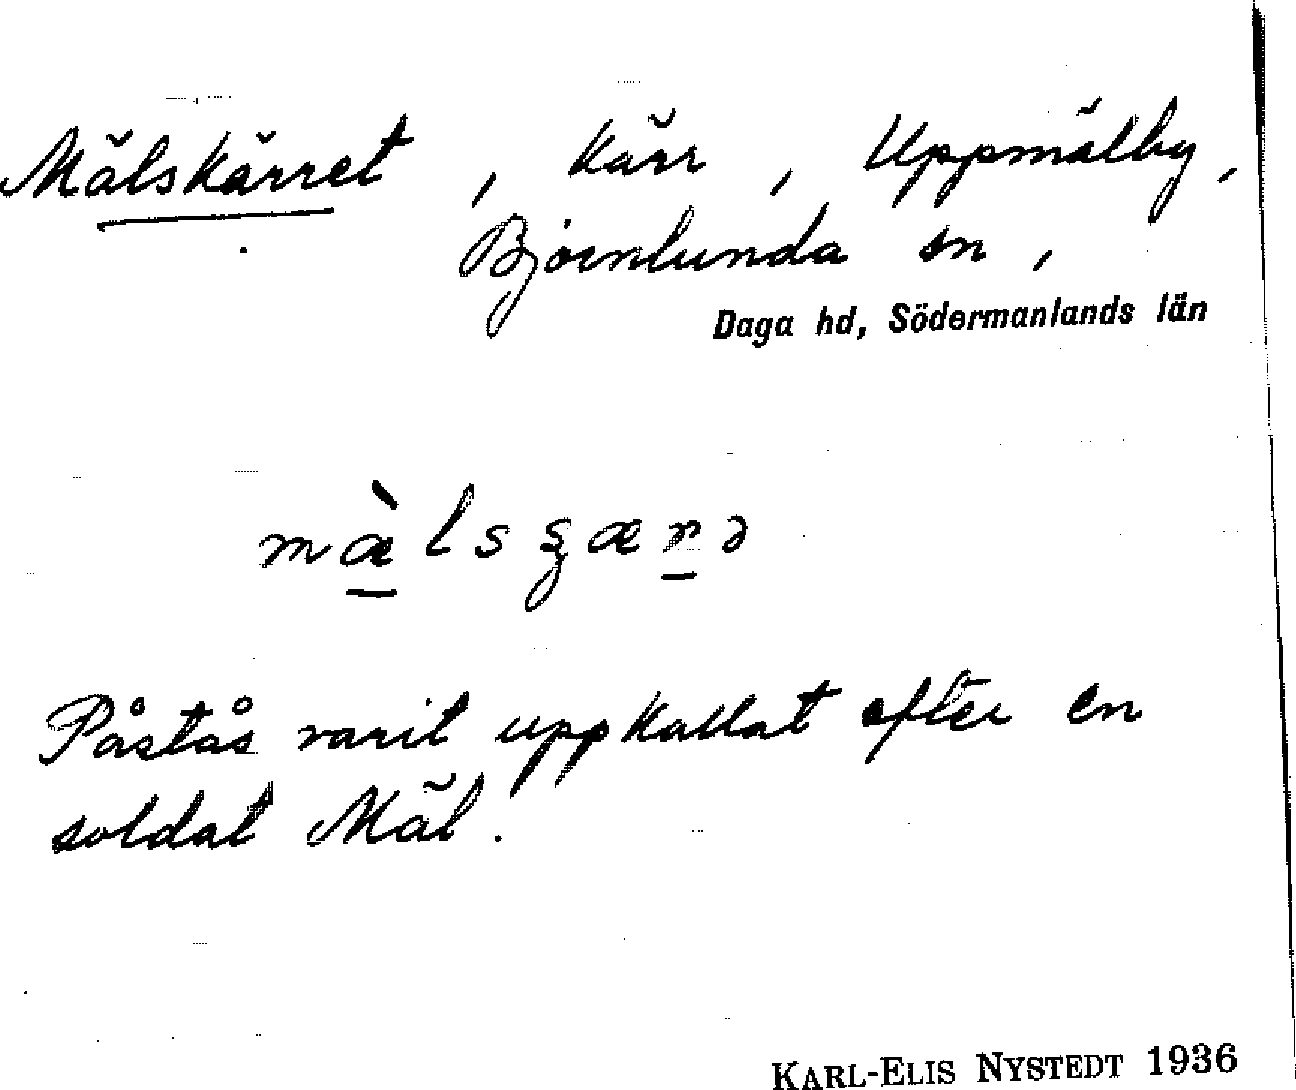 Mälskärret, kärr, Uppmälby,
Björnlunda sn,
Daga hd, Södermanlands län
mæ̀lsʂærə
Påstås varit uppkallat efter en
soldat Mäl.
KARL-ELIS NYSTEDT 1936